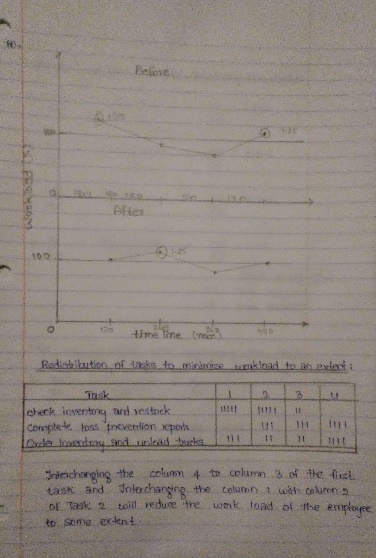 10.
Before:
Workload (%)
0
After
100
0
120
time line (min)
Redistribution of tasks to minimize workload to an extent:
Task 1 2 3 4
check inventory and restock
complete loss prevention reports
Order inventory and unload trucks
Interchanging the column 4 to column 3 of the first
task and Interchanging the column 1 with column 2
of Task 2 will reduce the work load of the employee
to some extent